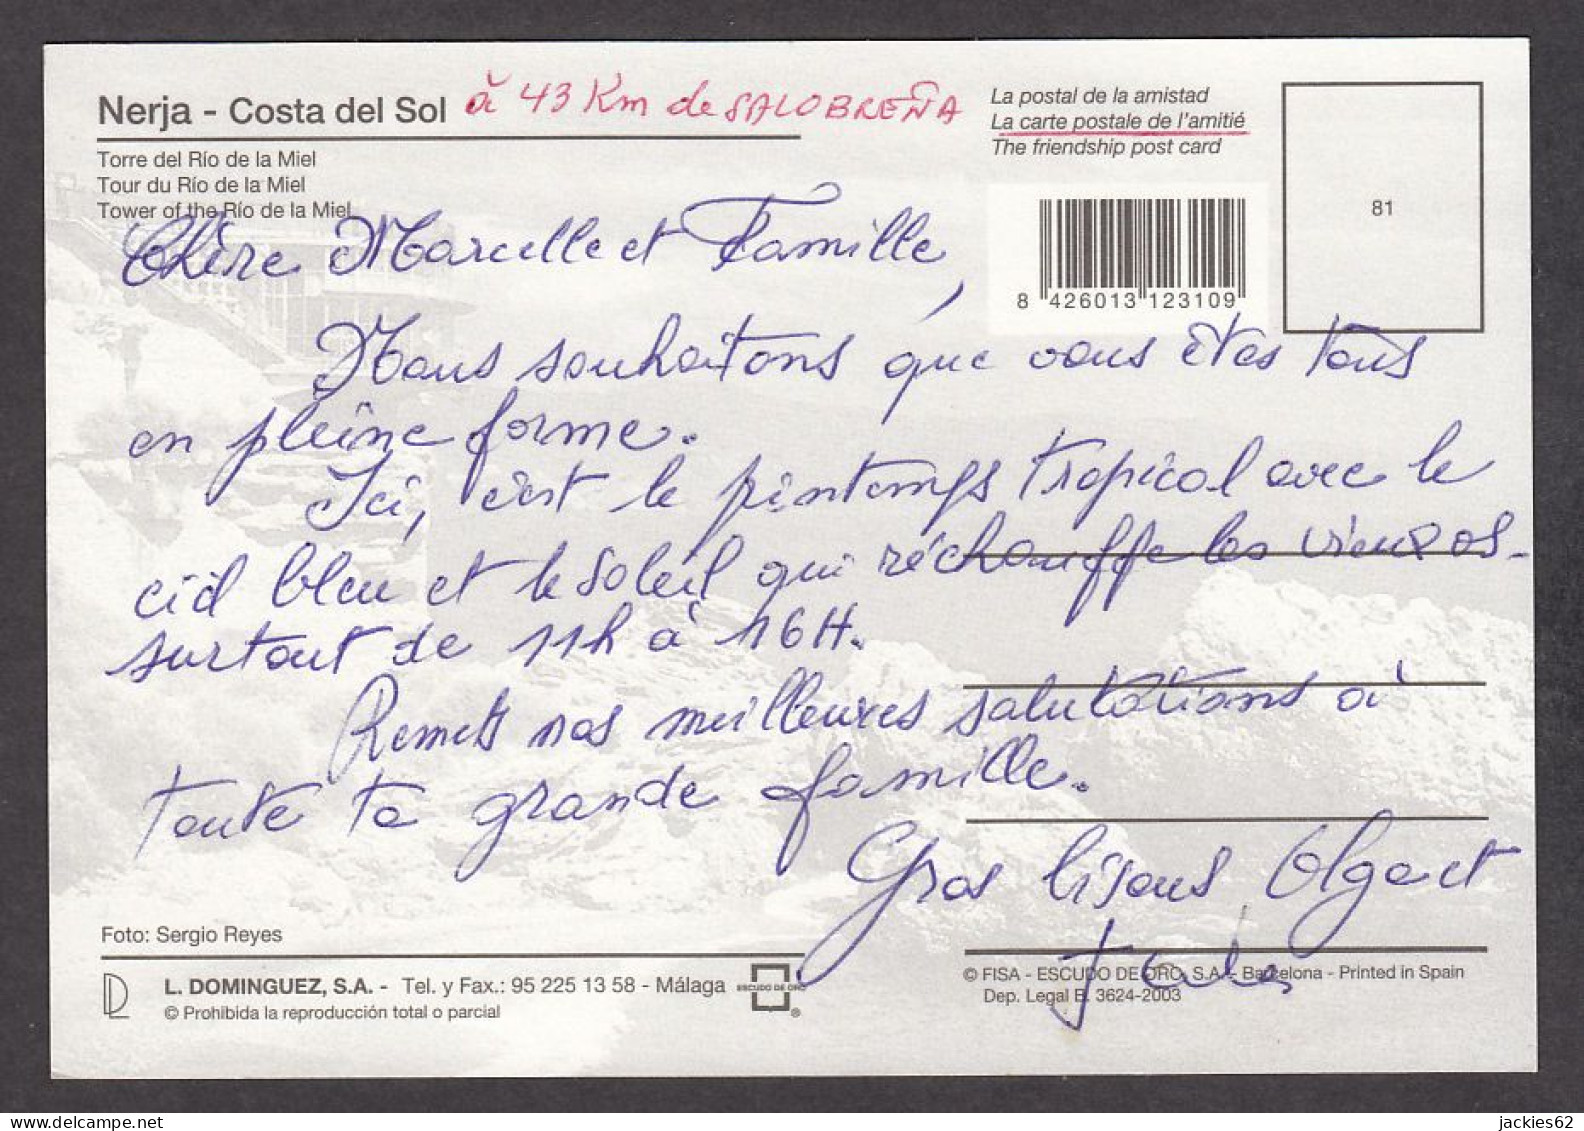 Nerja - Costa del Sol à 43 Km de SALOBREÑA
Torre del Río de la Miel
Tour du Río de la Miel
Tower of the Río de la Miel
La postal de la amistad
La carte postale de l'amitié
The friendship post card
81
8 426013 123109
Chère Marcelle et Famille,
Nous souhaitons que vous êtes tous
en pleine forme.
Ici, c'est le printemps tropical avec le
ciel bleu et le soleil qui réchauffe les vieux os -
surtout de 11h à 16H.
Remets nos meilleures salutations à
toute ta grande famille.
Gros bisous Olga et
Jules
Foto: Sergio Reyes
L. DOMINGUEZ, S.A. - Tel. y Fax.: 95 225 13 58 - Málaga
© Prohibida la reproducción total o parcial
ESCUDO DE ORO ®
© FISA - ESCUDO DE ORO, S.A. - Barcelona - Printed in Spain
Dep. Legal B. 3624-2003
jackies62